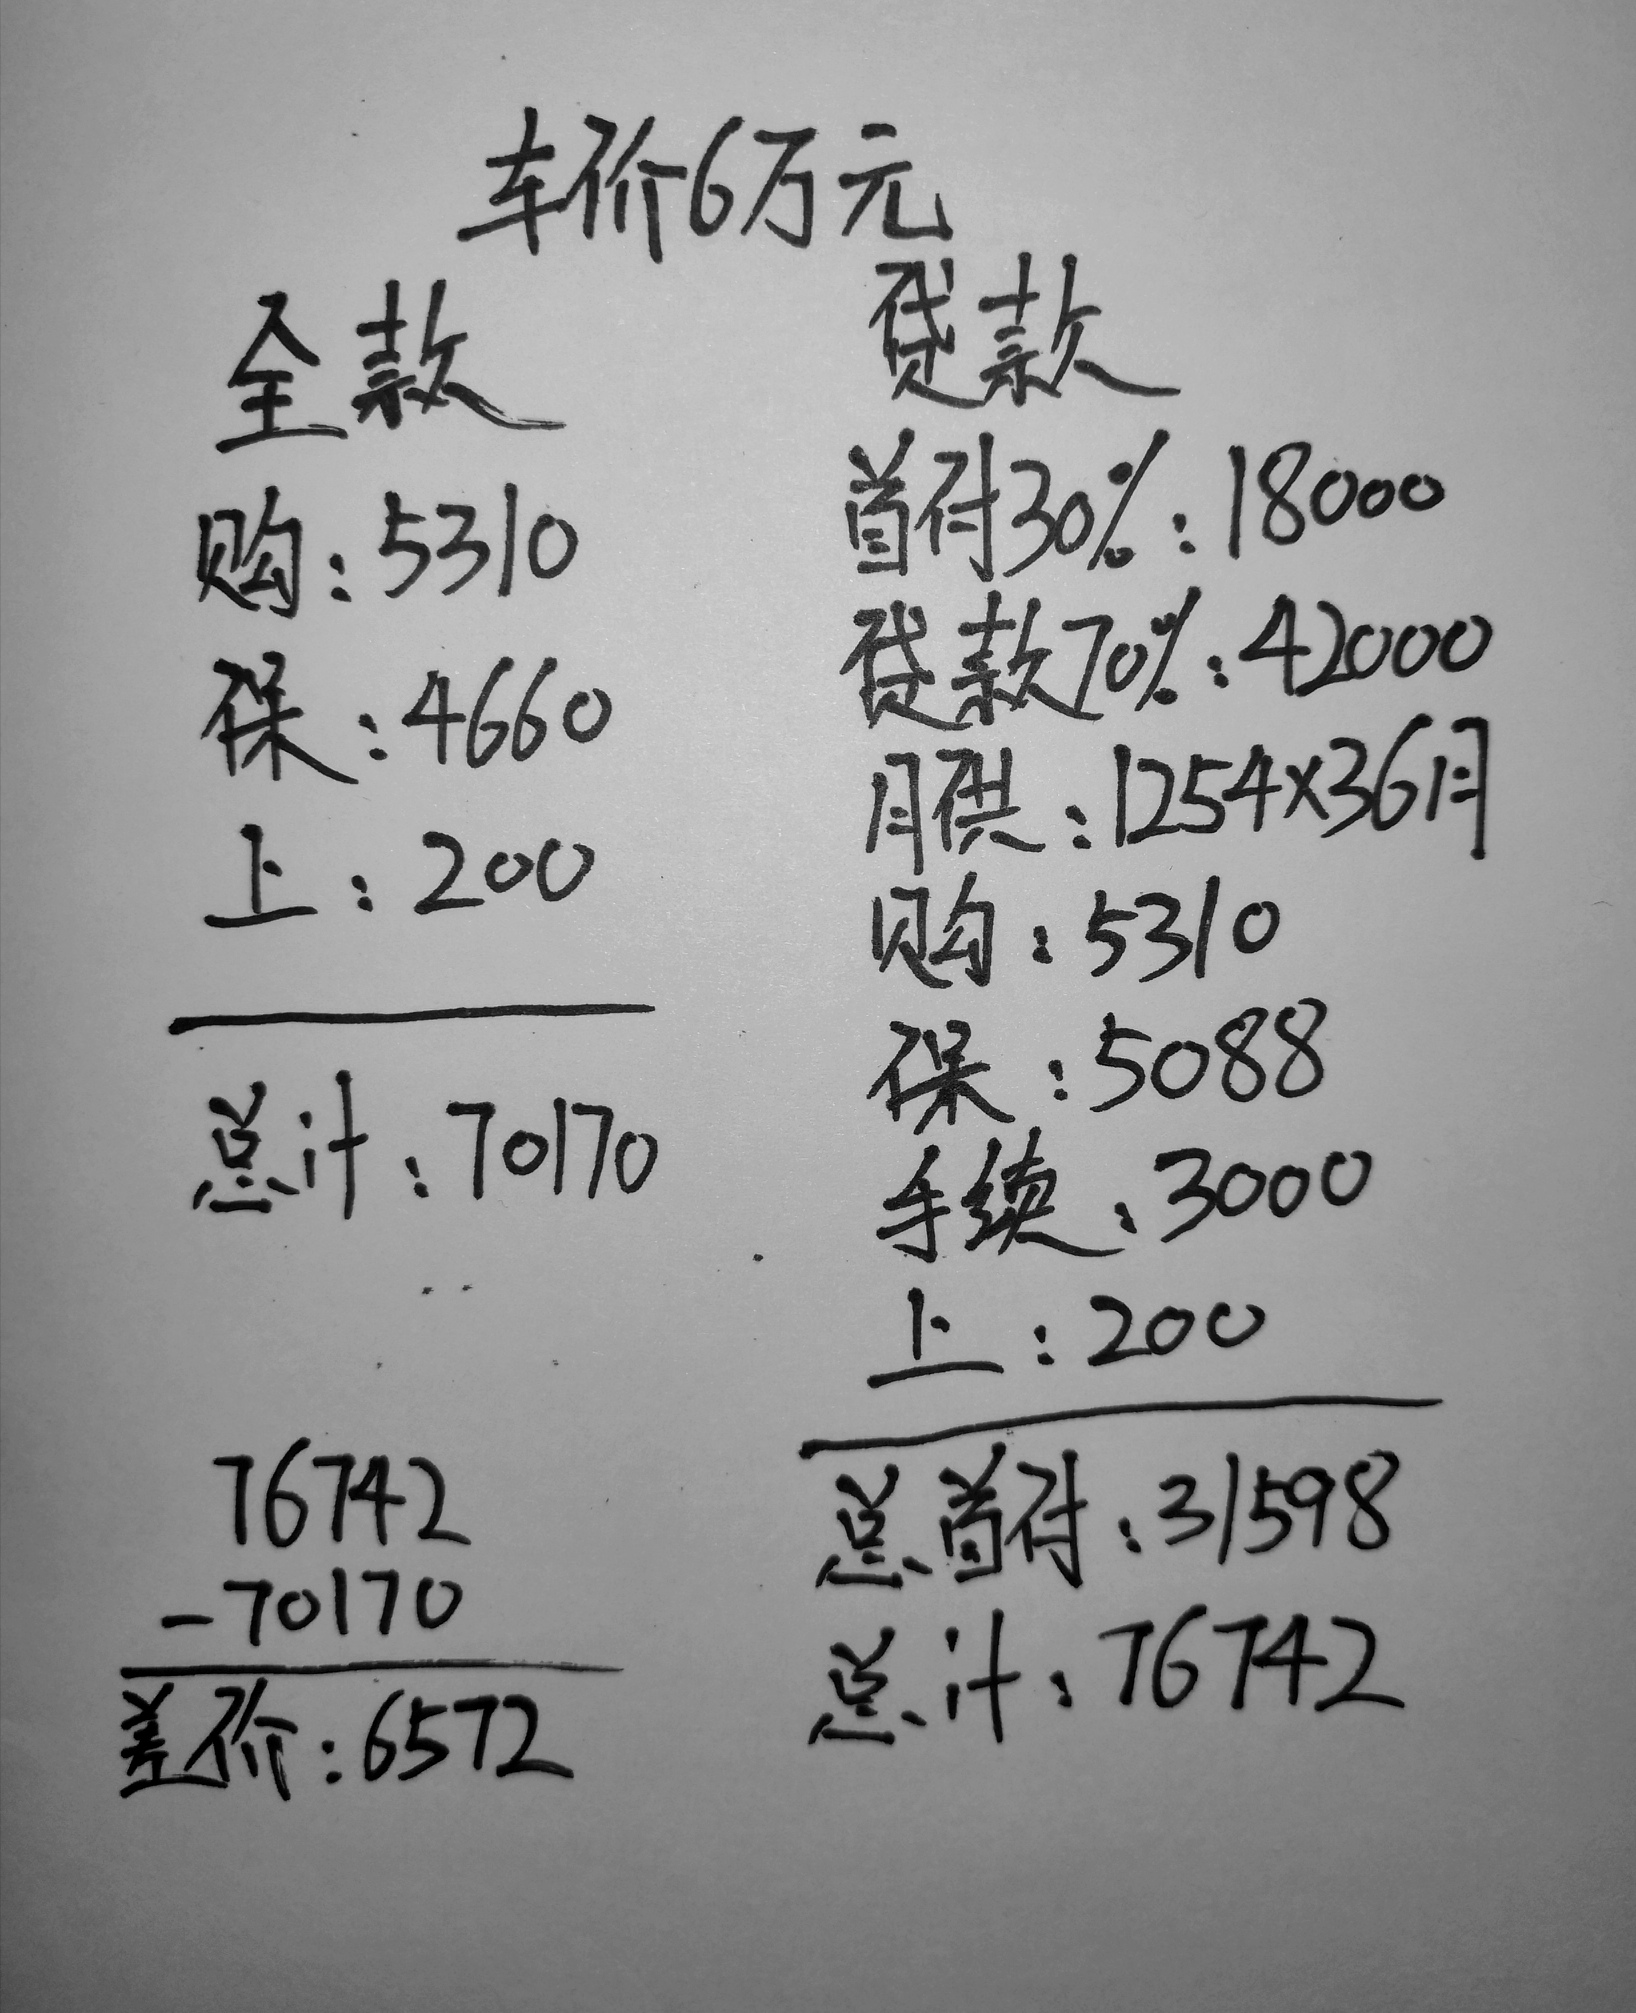 车价6万元
全款
购:5310
保:4660
上:200
总计:70170
贷款
首付30%:18000
贷款70%:42000
月供:1254×36月
购:5310
保:5088
手续:3000
上:200
总首付:31598
总计:76742
76742
-70170
差价:6572